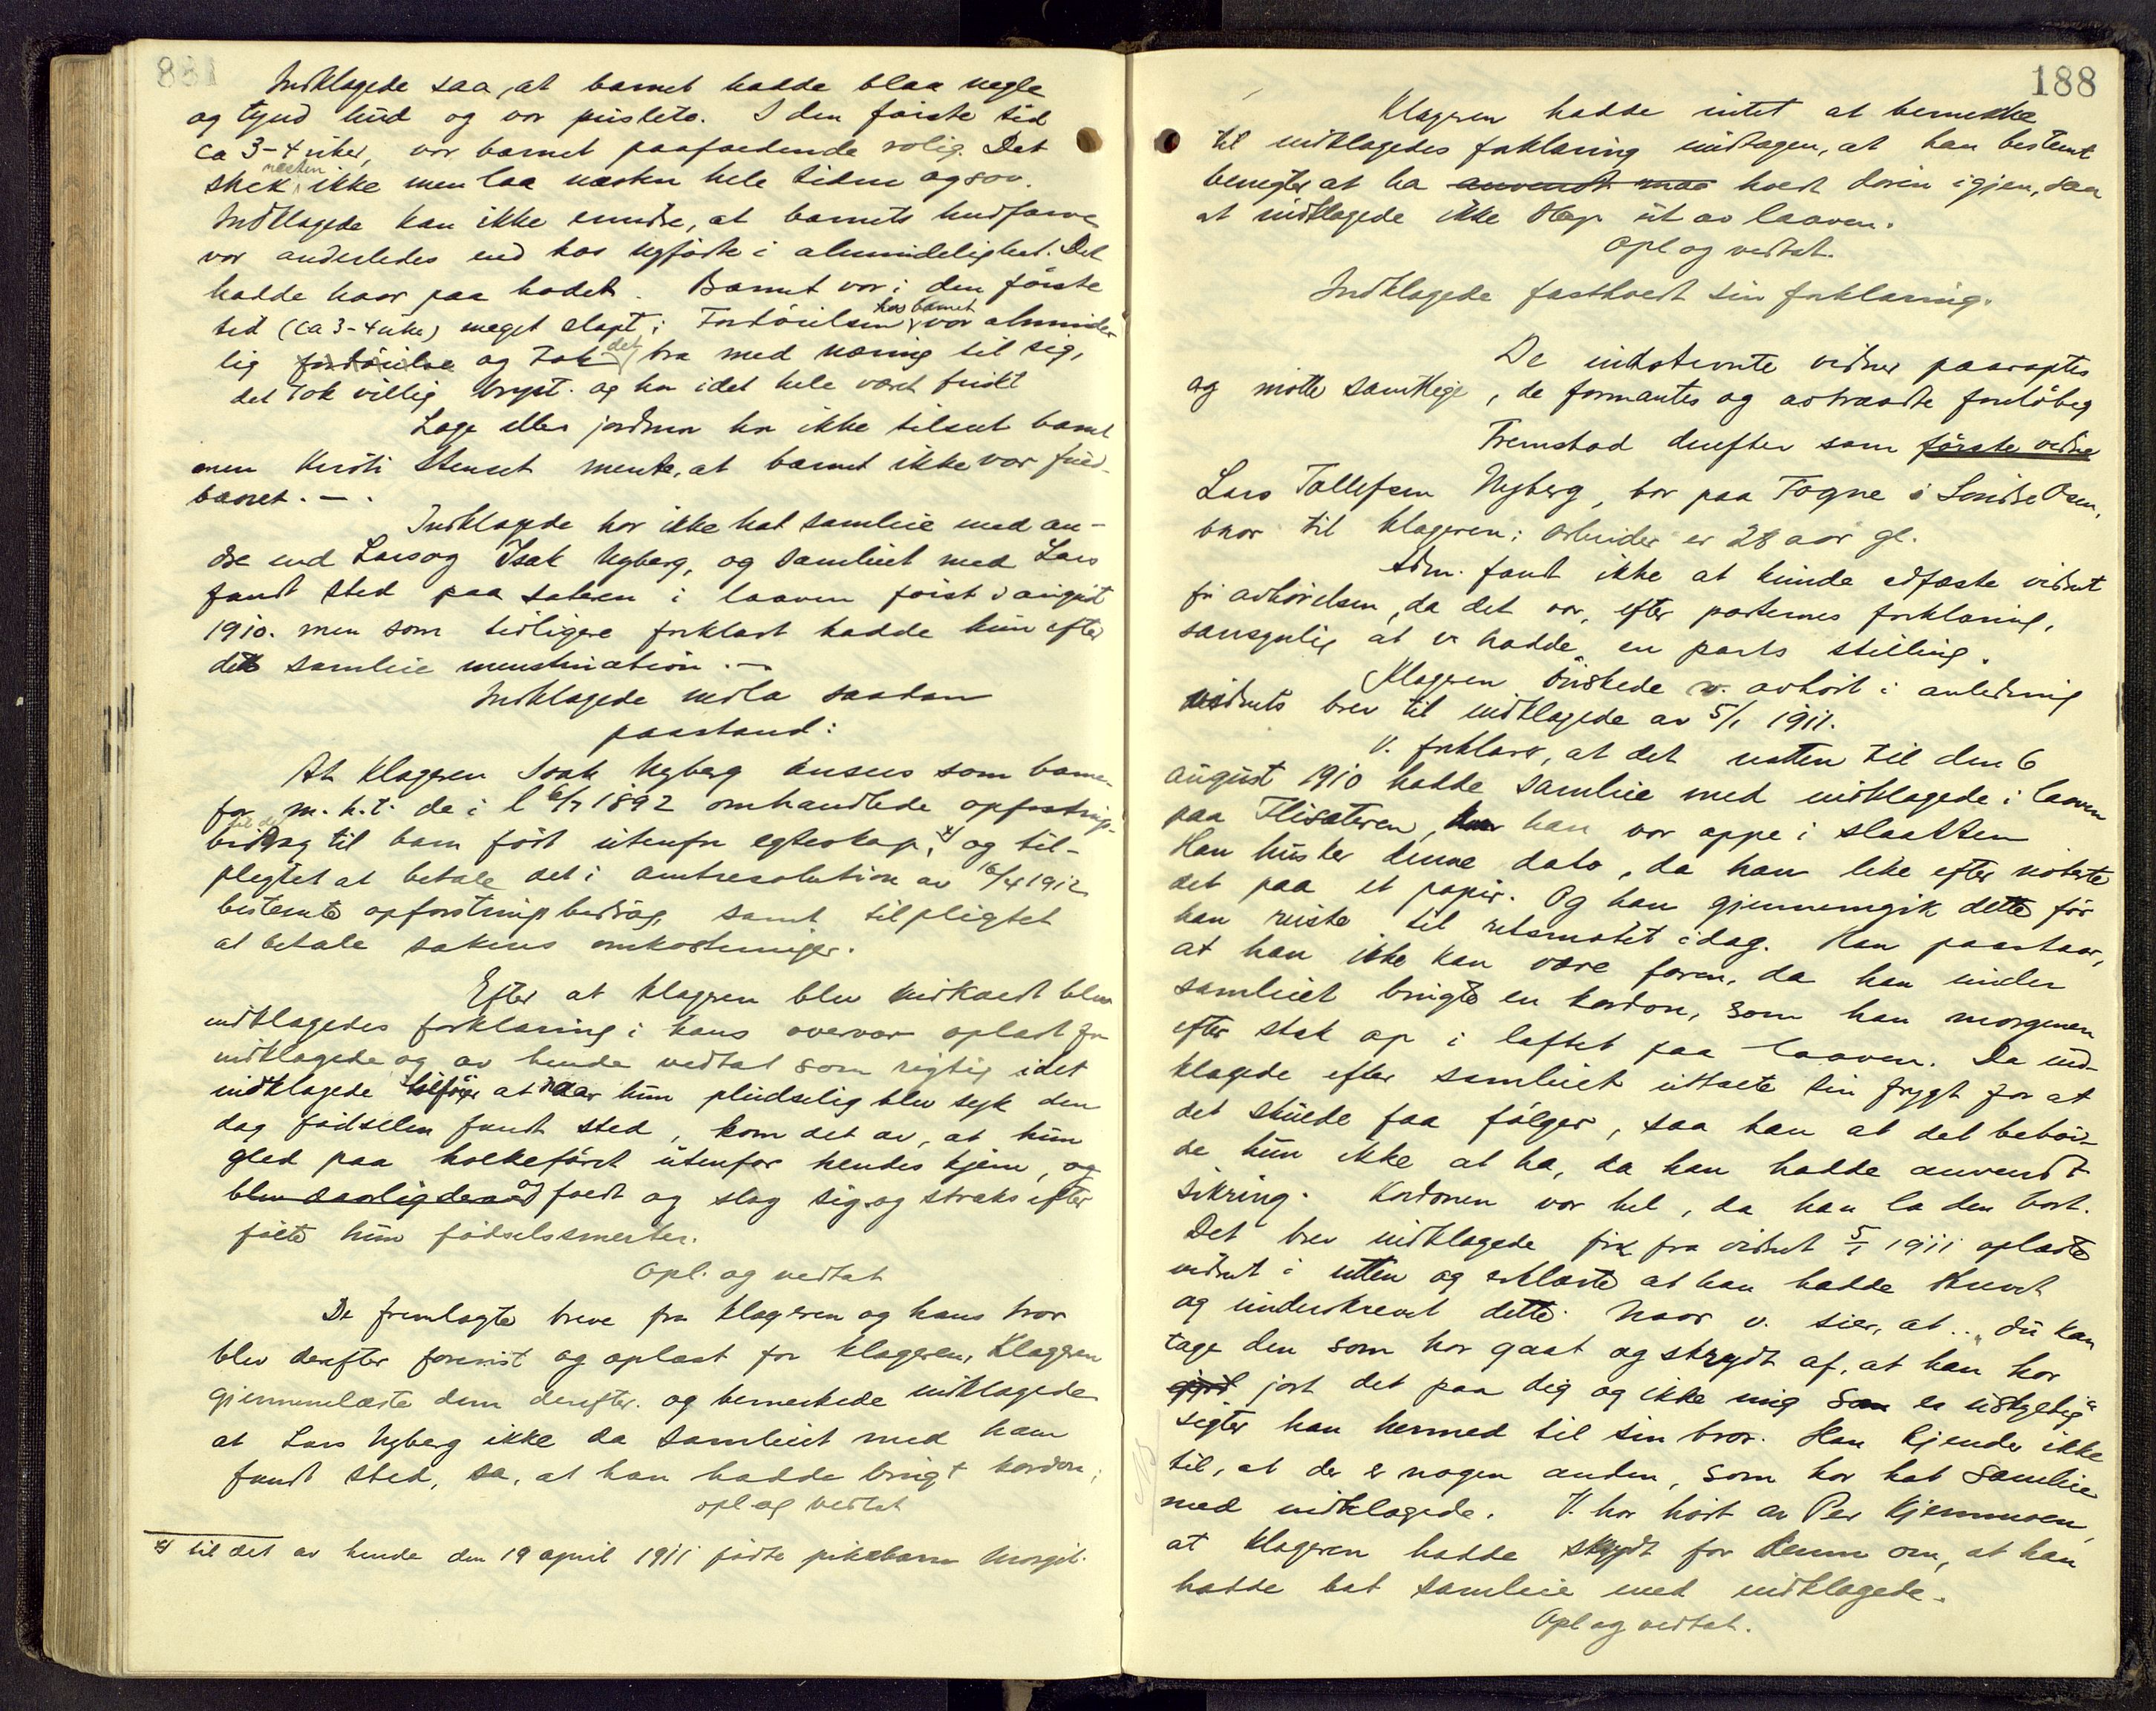 Indklagede saa, at barnet hadde blaa negle
og tynd hud og var puslete. I den første tid
ca 3-4 uker, var barnet paafaldende rolig. Det
skrek næsten ikke men laa næsten hele tiden og sov.
Indklagede kan ikke erindre, at barnets hudfarve
var anderledes end hos nyfødte i almindelighet. Det
hadde haar paa hodet. Barnet var i den første
tid (ca 3-4 uker) meget slapt; Fordøielsen hos barnet var alminde-
lig fordøielse og tok det bra med næring til sig,
det tok villig bryst. og har idet hele været friskt
Læge eller jordmor har ikke tilseet barnet
men Kirsti Stenset mente, at barnet ikke var fuld-
baaret. -.
Indklagede har ikke hat samleie med an-
dre end Lars og Isak Nyberg, og samleiet med Lars
fandt sted paa sæteren i laaven først i august
1910. men som tidligere forklart hadde hun efter
dette samleie menstruation. -
Indklagede nedla saadan
paastand:
At klageren Isak Nyberg ansees som barne-
far m. h. t. de i l 6/7 1892 omhandlede opfostrings-
bidrag til barn født utenfor egteskap, x) og til-
pligtet at betale det i amtresolution av 16/4 1912
bestemte opfostringsbidrag, samt tilpligtet
at betale sakens omkostninger.
Efter at klageren blev indkaldt blev
indklagedes forklaring i hans overvær oplæst for
indklagede og av hende vedtat som rigtig idet
indklagede tilføier at naar hun pludselig blev syk den
dag fødselen fandt sted, kom det av, at hun
gled paa holkeføret utenfor hendes hjem, og
blev daarlig derved faldt og slog sig og straks efter
følte hun fødselssmerter.
Opl. og vedtat
De fremlagte breve fra klageren og hans bror
blev derefter forevist og oplæst for klageren, Klageren
gjennemlæste dem derefter. og bemerkede indklagede
at Lars Nyberg ikke da samleiet med ham
fandt sted, sa, at han hadde brugt kordon;
opl og vedtat
x) til det av hende den 19 april 1911 fødte pikebarn Margit.
188
Klageren hadde intet at bemerke
til indklagedes forklaring undtagen, at han bestemt
benegter at ha anvendt maa holdt døren igjen, saa
at indklagede ikke slap ut av laaven.
Opl og vedtat.
Indklagede fastholdt sin forklaring.
De indstevnte vidner paaraptes
og møtte samtlige, de formantes og avtraadte foreløbig
Fremstod derefter som første vidne
Lars Tollefsen Nyberg, bor paa Fogne i Søndre Osen,
bror til klageren; arbeider er 28 aar gl.
Adm. fandt ikke at kunde edfæste vidnet
før avhørelsen, da det var, efter parternes forklaring,
sansynlig at v. hadde en parts stilling.
Klageren ønskede v. avhørt i anledning
vidnets brev til indklagede av 5/1 1911.
V. forklarer, at det natten til den 6
august 1910 hadde samleie med indklagede i laaven
paa Flisæteren, hvor han var oppe i slaatten
Han husker denne dato, da han like efter noterte
det paa et papir. Og han gjennemgik dette før
han reiste til retsmøtet idag. Han paastaar,
at han ikke kan være faren, da han under
samleiet brugte en kordon, som han morgenen
efter stak op i loftet paa laaven. Da ind-
klagede efter samleiet uttalte sin frygt for at
det skulde faa følger, saa han at det behøv-
de hun ikke at ha, da han hadde anvendt
sikring. Kordonen var hel, da han la den bort.
Det brev indklagede fik fra vidnet 5/1 1911 oplæste
vidnet i retten og erklærte at han hadde skrevet
og underskrevet dette. Naar v. sier, at.. "du kan
tage den som har gaat og skrydt af, at han har
gjort jort det paa dig og ikke mig som er uskyldig"
sigter han hermed til sin bror. Han kjender ikke
til, at der er nogen anden, som har hat samleie
med indklagede. V. har hørt av Per Kjernmoen,
at klageren hadde skrydt for denne om, at han
hadde hat samleie med indklagede.
Opl og vedtat.